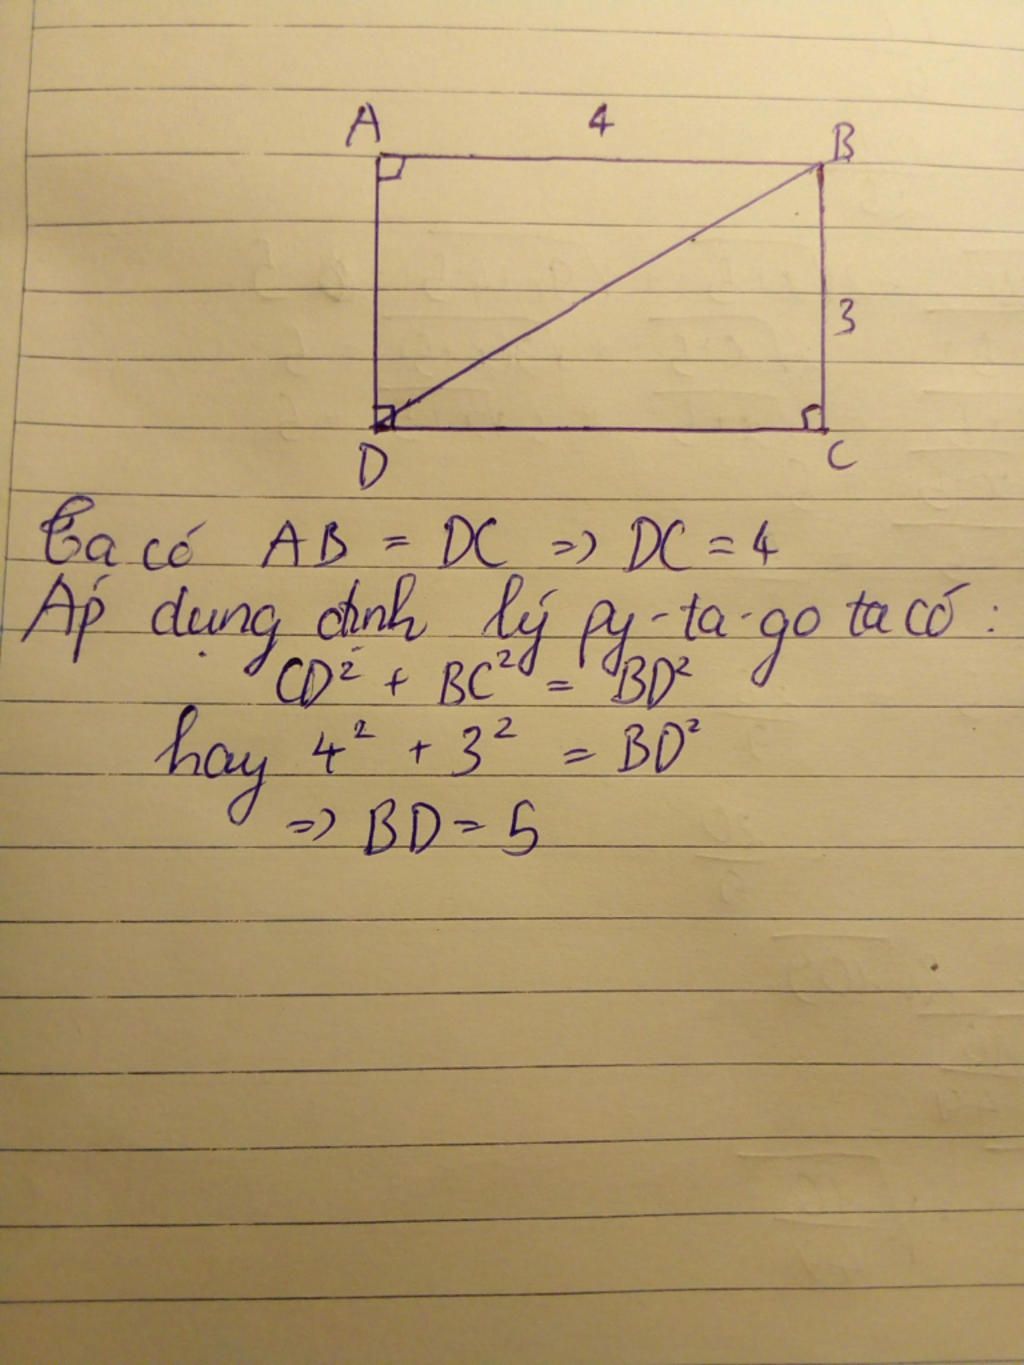 A 4 B
3
D C
Ta có AB = DC => DC = 4
Áp dụng định lý py-ta-go ta có :
CD² + BC² = BD²
hay 4² + 3² = BD²
=> BD = 5